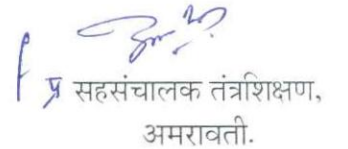 प्र सहसंचालक तंत्रशिक्षण,
अमरावती.